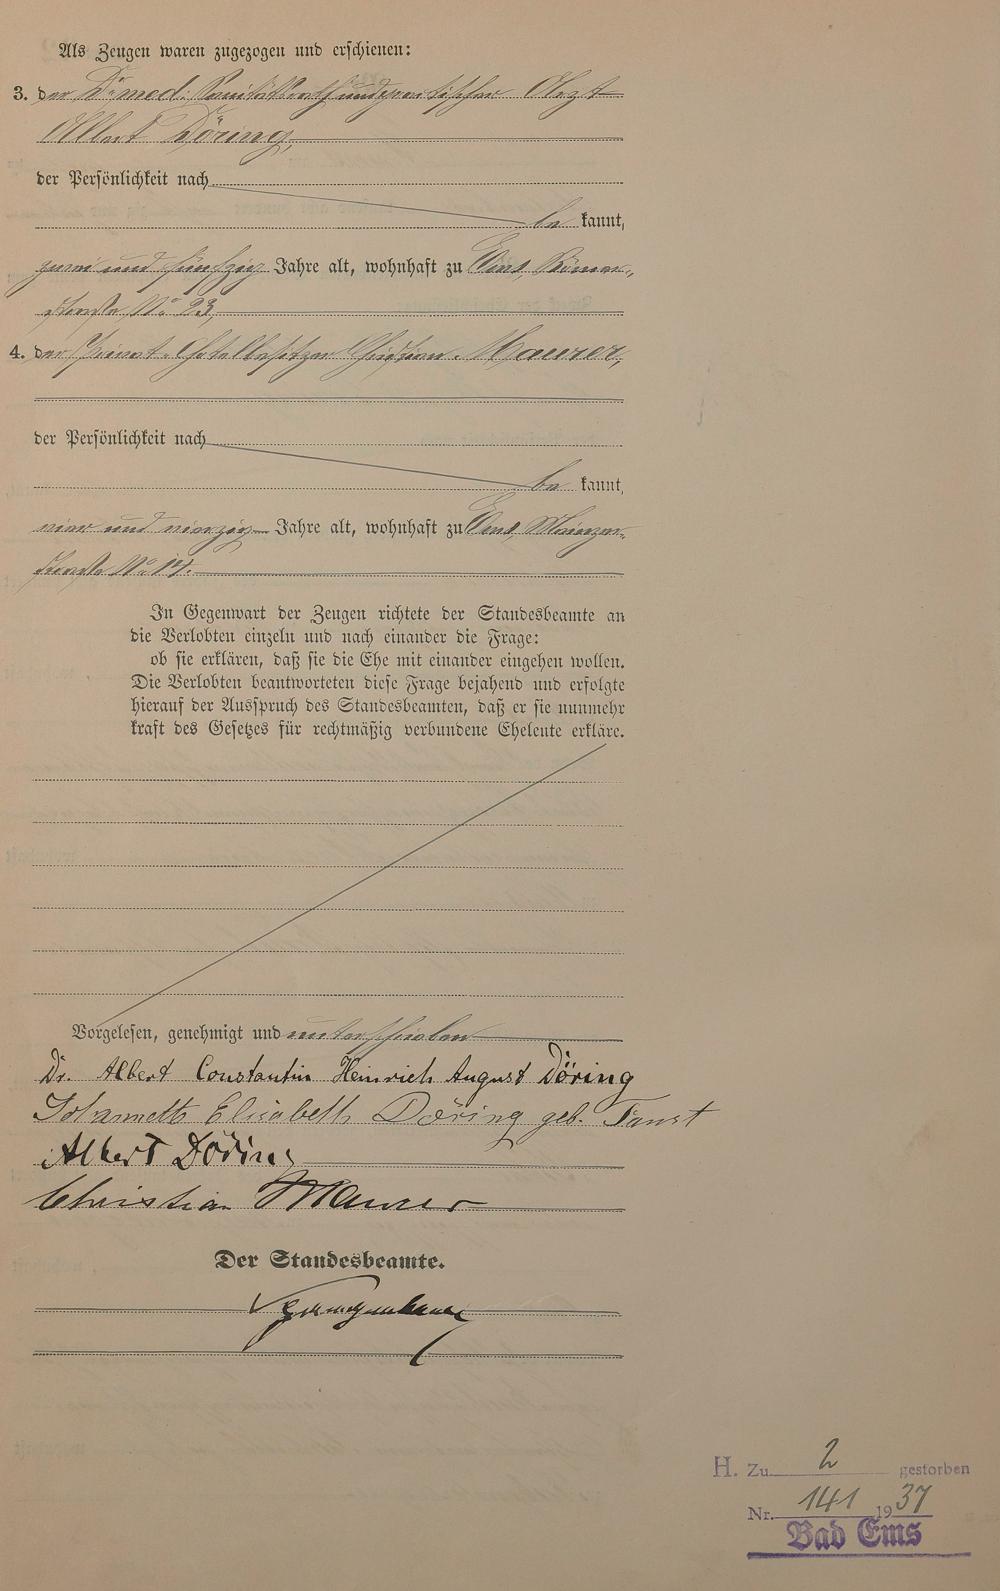 Als Zeugen waren zugezogen und erschienen:
3. der Dr. med. Sanitätsrath und practischer Arzt
Albert Döring,
der Persönlichkeit nach
be kannt,
zwei und fünfzig Jahre alt, wohnhaft zu Ems, Römer-
straße No. 23,
4. der Privat-Hotelbesitzer Christian Maurer,
der Persönlichkeit nach
be kannt,
vier und vierzig Jahre alt, wohnhaft zu Ems, Mainzer-
straße No. 14.
In Gegenwart der Zeugen richtete der Standesbeamte an
die Verlobten einzeln und nach einander die Frage:
ob sie erklären, daß sie die Ehe mit einander eingehen wollen.
Die Verlobten beantworteten diese Frage bejahend und erfolgte
hierauf der Ausspruch des Standesbeamten, daß er sie nunmehr
kraft des Gesetzes für rechtmäßig verbundene Eheleute erkläre.
Vorgelesen, genehmigt und unterschrieben
Dr. Albert Constantin Heinrich August Döring
Johannette Elisabeth Doering geb. Faust
Albert Döring
Christian Maurer
Der Standesbeamte.
H. Zu 2 gestorben
Nr. 141 1937
Bad Ems